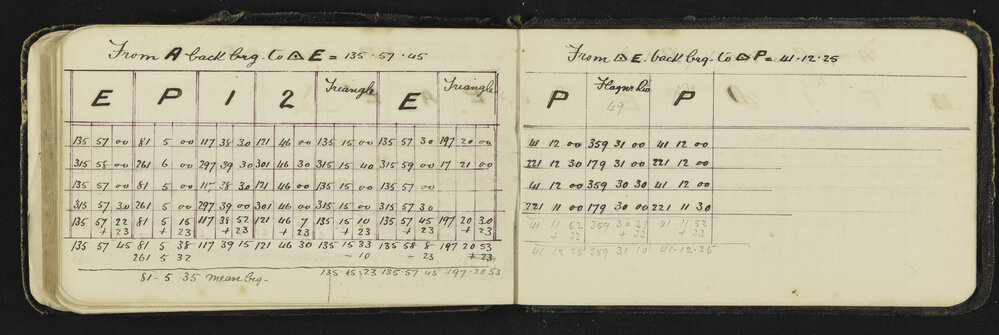 From A back brg. to △ E = 135·57·45
E P 1 2 Triangle E Triangle
135 57 00 81 5 00 117 38 30 121 46 00 135 15 00 135 57 30 197 20 00
315 58 00 261 6 00 297 39 30 301 46 30 315 15 40 315 59 00 17 21 00
135 57 00 81 5 00 117 38 30 121 46 00 135 15 00 135 57 00
315 57 30 261 5 00 297 39 00 301 46 00 315 15 00 315 57 30
135 57 22 81 5 15 117 38 52 121 46 7 135 15 10 135 57 45 197 20 30
+ 23 + 23 + 23 + 23 + 23 + 23
135 57 45 81 5 38 117 39 15 121 46 30 135 15 33 135 58 8 197 20 53
261 5 32 - 10 - 23 + 23
81 - 5 35 mean brg - 135 15·23 135·57·45 197·20 53
From △ E. back brg. to △ P = 41·12·25
P P
49
41 12 00 359 31 00 41 12 00
221 12 30 179 31 00 221 12 30
41 12 00 359 30 30 41 12 00
221 11 00 179 30 00 221 11 30
41 11 52 359 30 37 41 11 52
+ 33 + 33 + 33
41 12 25 359 31 10 41·12·25